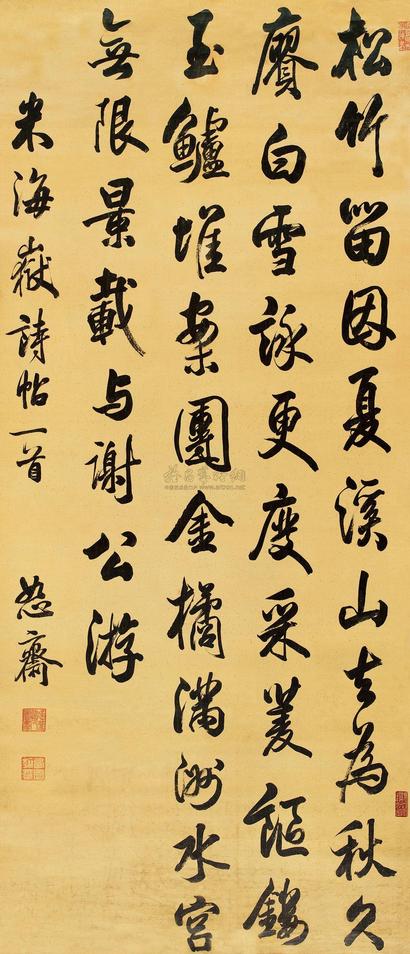 松竹留因夏溪山去為秋久
賡白雪詠更度采菱謳鏤
玉鱸堆案團金橘滿洲水宮
無限景載与謝公游
米海嶽詩帖一首
恕齋